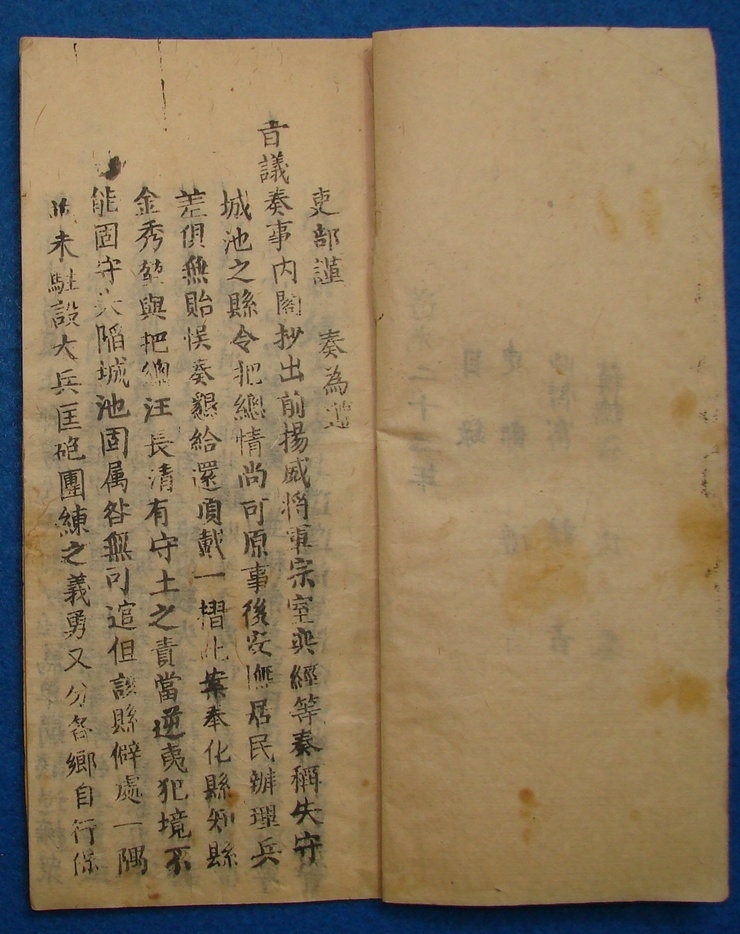 吏部謹　奏為遵
旨議奏事內閣抄出前揚威將軍宗室奕經等奏稱失守
城池之縣令把總情尚可原事後安撫居民辦理兵
差俱無貽悮奏懇給還頂戴一摺此案奉化縣知縣
金秀堃與把總汪長清有守土之責當逆夷犯境不
能固守失陷城池固属咎無可逭但該縣僻處一隅
未駐設大兵匡砲團練之義勇又分各鄉自行保